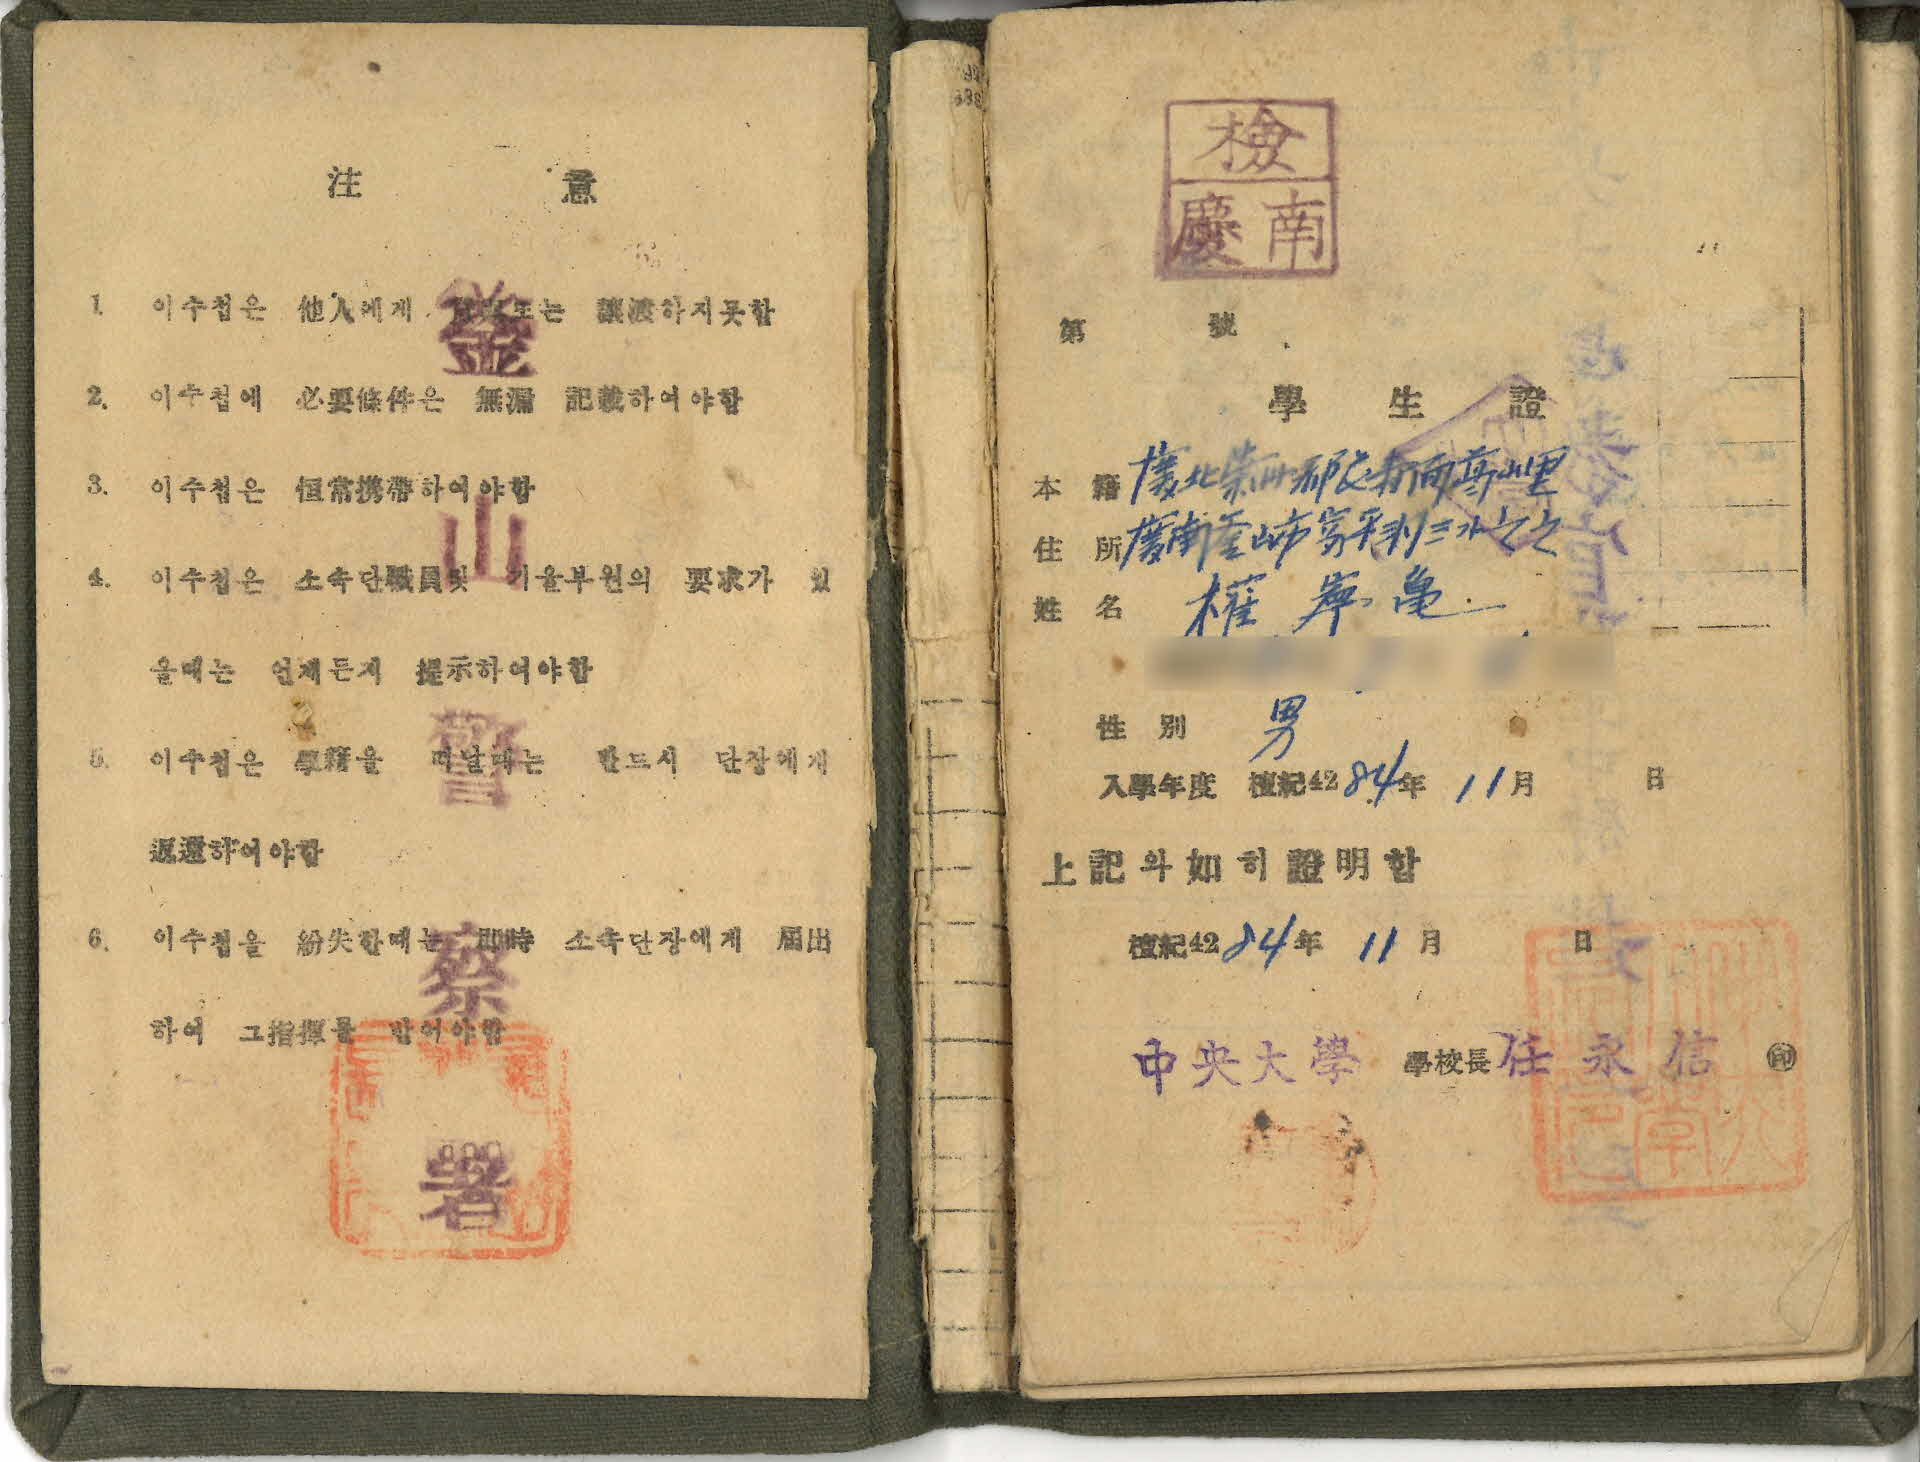 注 意
1. 이수첩은 他人에게 또는 讓渡하지못함
2. 이수첩에 必要條件은 無漏 記載하여야함
3. 이수첩은 恒常携帶하여야함
4. 이수첩은 소속단職員및 기율부원의 要求가 있
을때는 언제든지 提示하여야함
5. 이수첩은 學籍을 떠날때는 반드시 단장에게
返還하여야함
6. 이수첩을 紛失한때는 即時 소속단장에게 屆出
하여 그指揮를 받어야함
釜山警察署
檢
慶南
第 號
學生證
本籍 慶北 郡 面 里
住所 慶南釜山市富平洞三
姓名 權 龜
性別 男
入學年度 檀紀4284年 11月 日
上記와如히證明함
檀紀4284年 11月 日
中央大學 學校長 任永信 ㊞